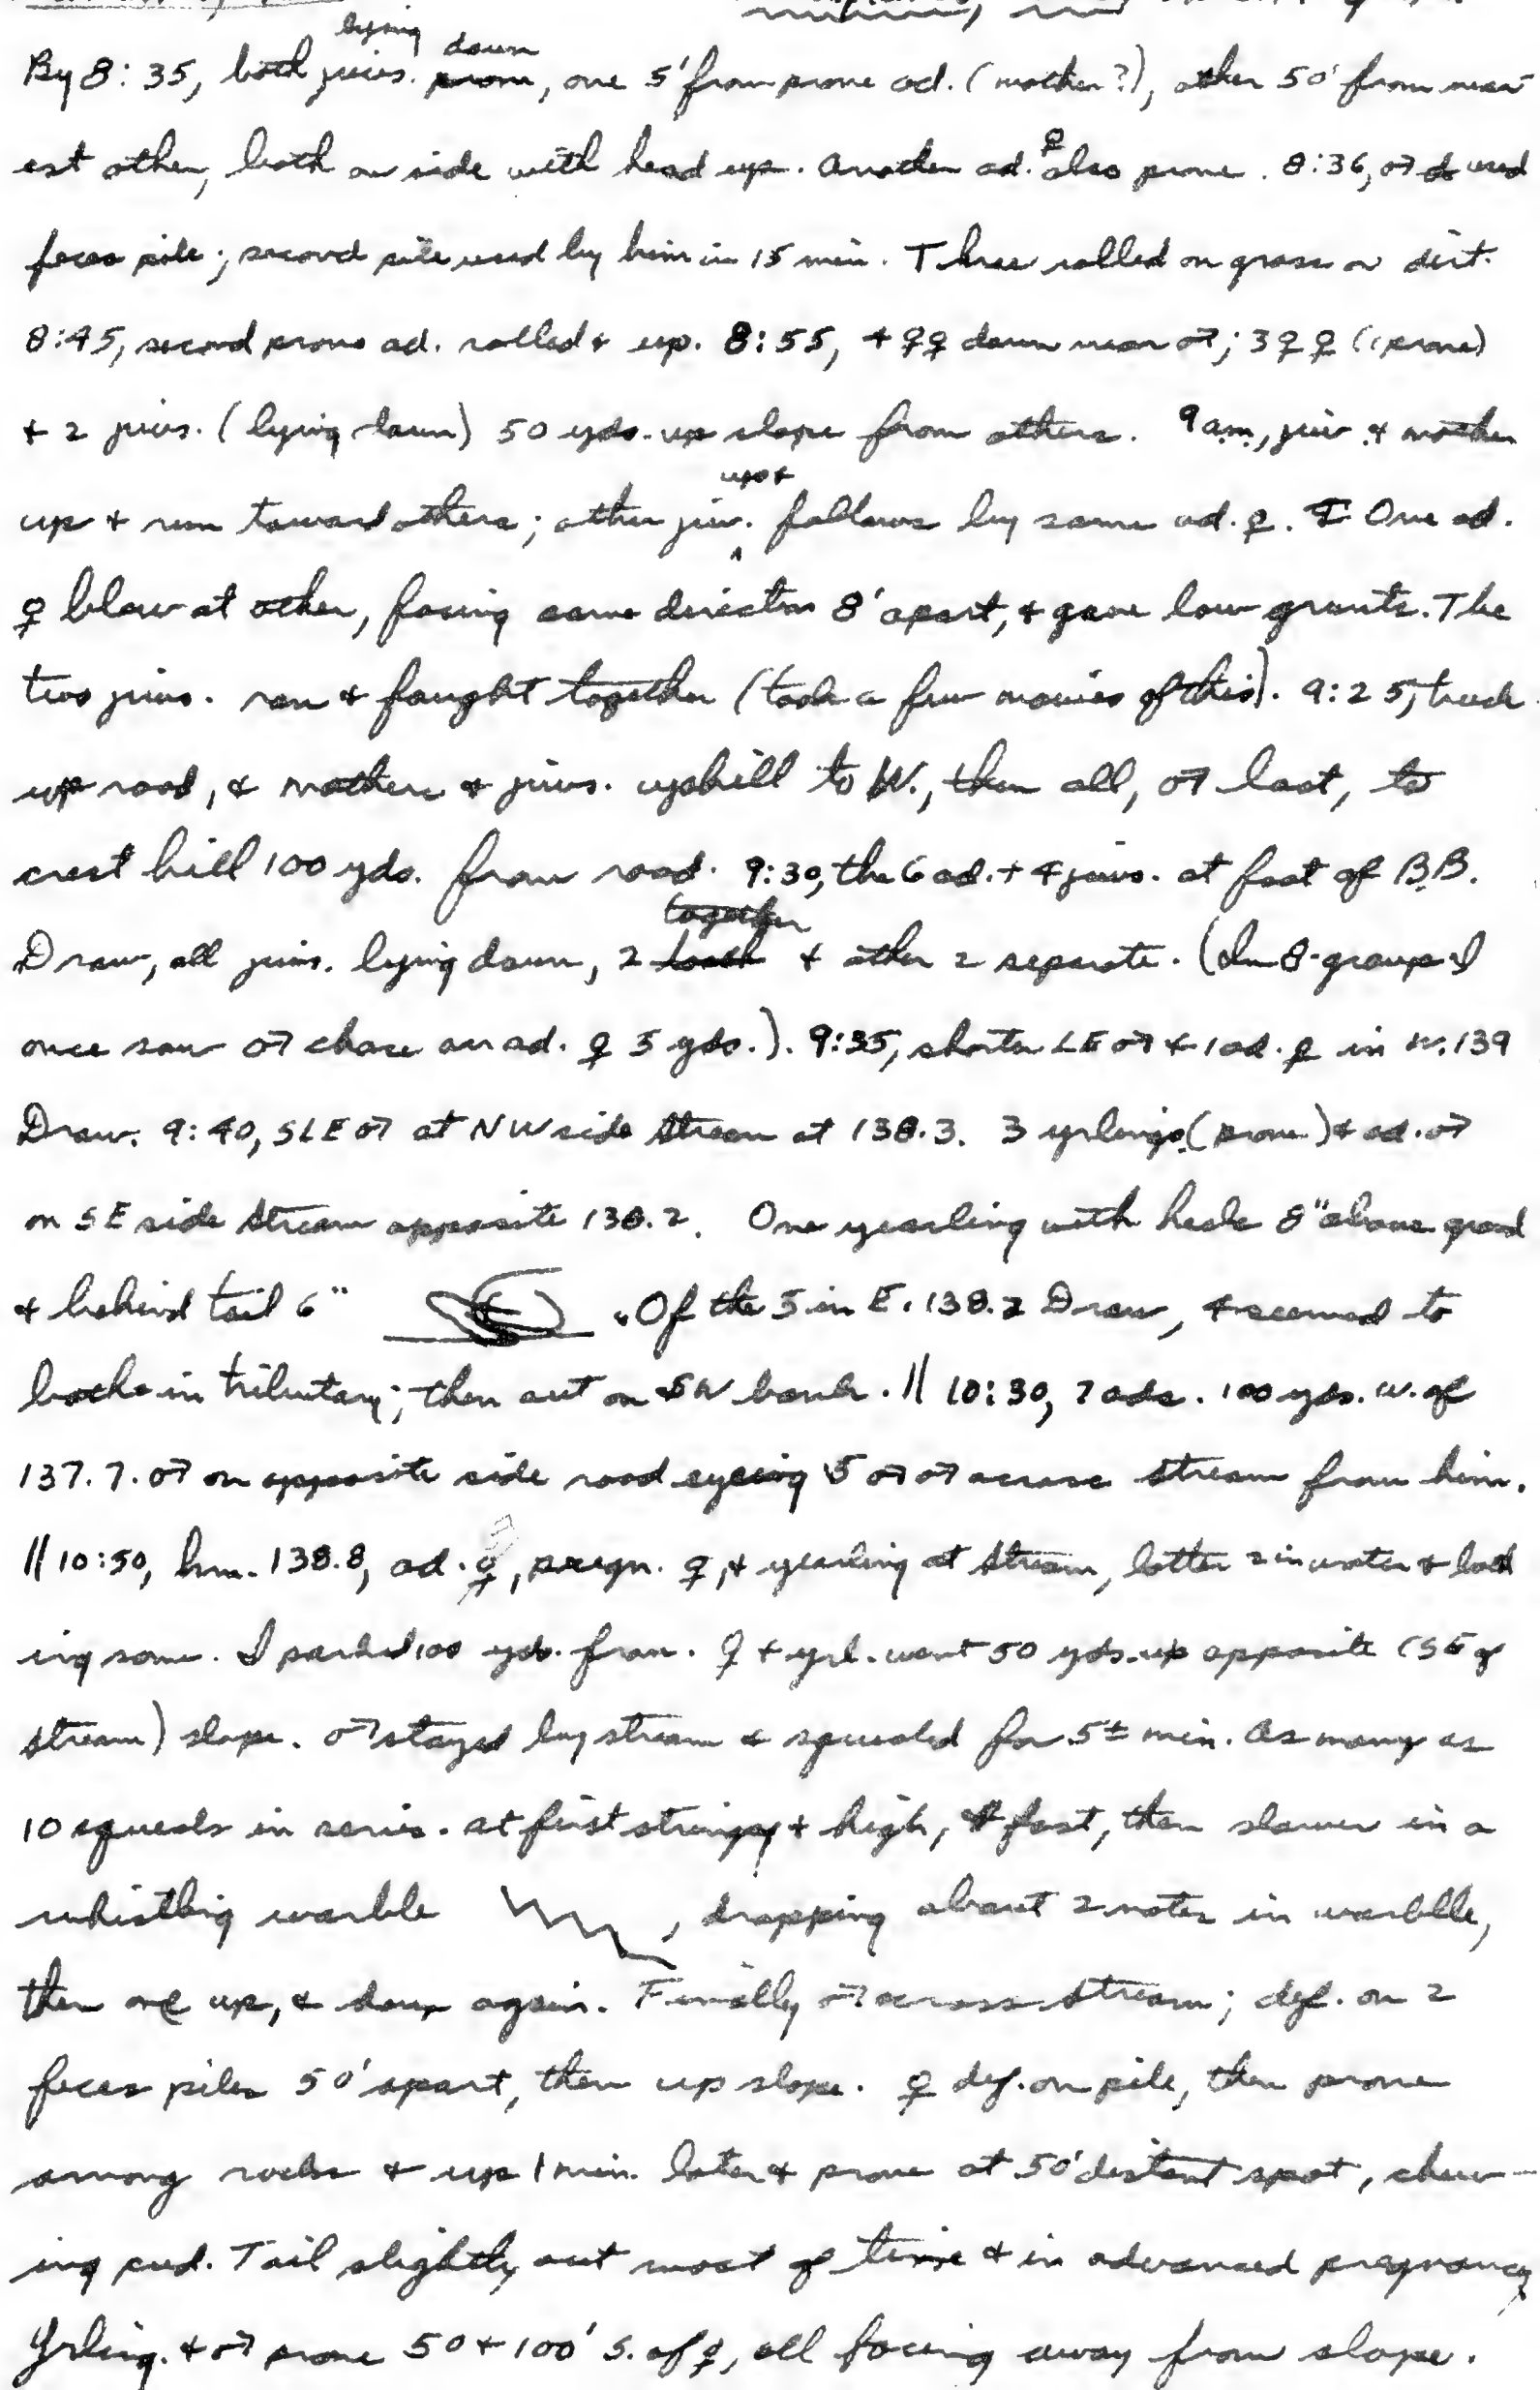 lying down
By 8:35, both juvs. prone, one 5' from prone ad. (mother?), other 50' from near-
est other, both on side with head up. Another ad. ♀ also prone. 8:36, ♂ used
feces pile; second pile used by him in 15 min. Three rolled on grass or dirt.
8:45, second prone ad. rolled & up. 8:55, 4 ♀♀ down near ♂; 3 ♀♀ (1 prone)
& 2 juvs. (lying down) 50 yds. up slope from others. 9 am, juv. & mother
up & run toward others; other juv. up & follows by same ad. ♀. One ad.
♀ blew at other, facing same direction 8' apart, & gave low grunts. The
two juvs. ran & fought together (took a few movies of this). 9:25, truck
up road, & mothers & juvs. uphill to W., then all, ♂ last, to
crest hill 100 yds. from road. 9:30, the 6 ad. + 4 juvs. at foot of B.B.
together
Draw, all juvs. lying down, 2 & other 2 separate. (In 8-group I
once saw ♂ chase an ad. ♀ 5 yds.). 9:35, shorter LE ♂ & 1 ad. ♀ in W. 139
Draw. 9:40, SLE ♂ at NW side stream at 138.3. 3 yrlings (prone) & ad. ♂
on SE side stream opposite 138.2. One yearling with heels 8" above ground
& behind tail 6". Of the 5 in E. 138.2 Draw, 4 seemed to
bathe in tributary; then out on SW bank. || 10:30, 7 ads. 100 yds. W. of
137.7. ♂ on opposite side road eyeing 5 ♂♂ across stream from him.
|| 10:50, hm. 138.8, ad. ♀, pregn. ♀, & yearling at stream, latter 2 in water & bath-
ing some. I parked 100 yds. from. ♀ & yrl. went 50 yds. up opposite (SE of
stream) slope. ♂ stayed by stream & squealed for 5± min. As many as
10 squeals in series. At first stringy & high, & fast, then slower in a
whistling warble, dropping about 2 notes in warble,
then one up, & down again. Finally ♂ across stream; def. on 2
feces piles 50' apart, then up slope. ♀ def. on pile, then prone
among rocks & up 1 min. later & prone at 50' distant spot, chew-
ing cud. Tail slightly out most of time & in advanced pregnancy
Yrling. & ♂ prone 50 & 100' S. of ♀, all facing away from slope.